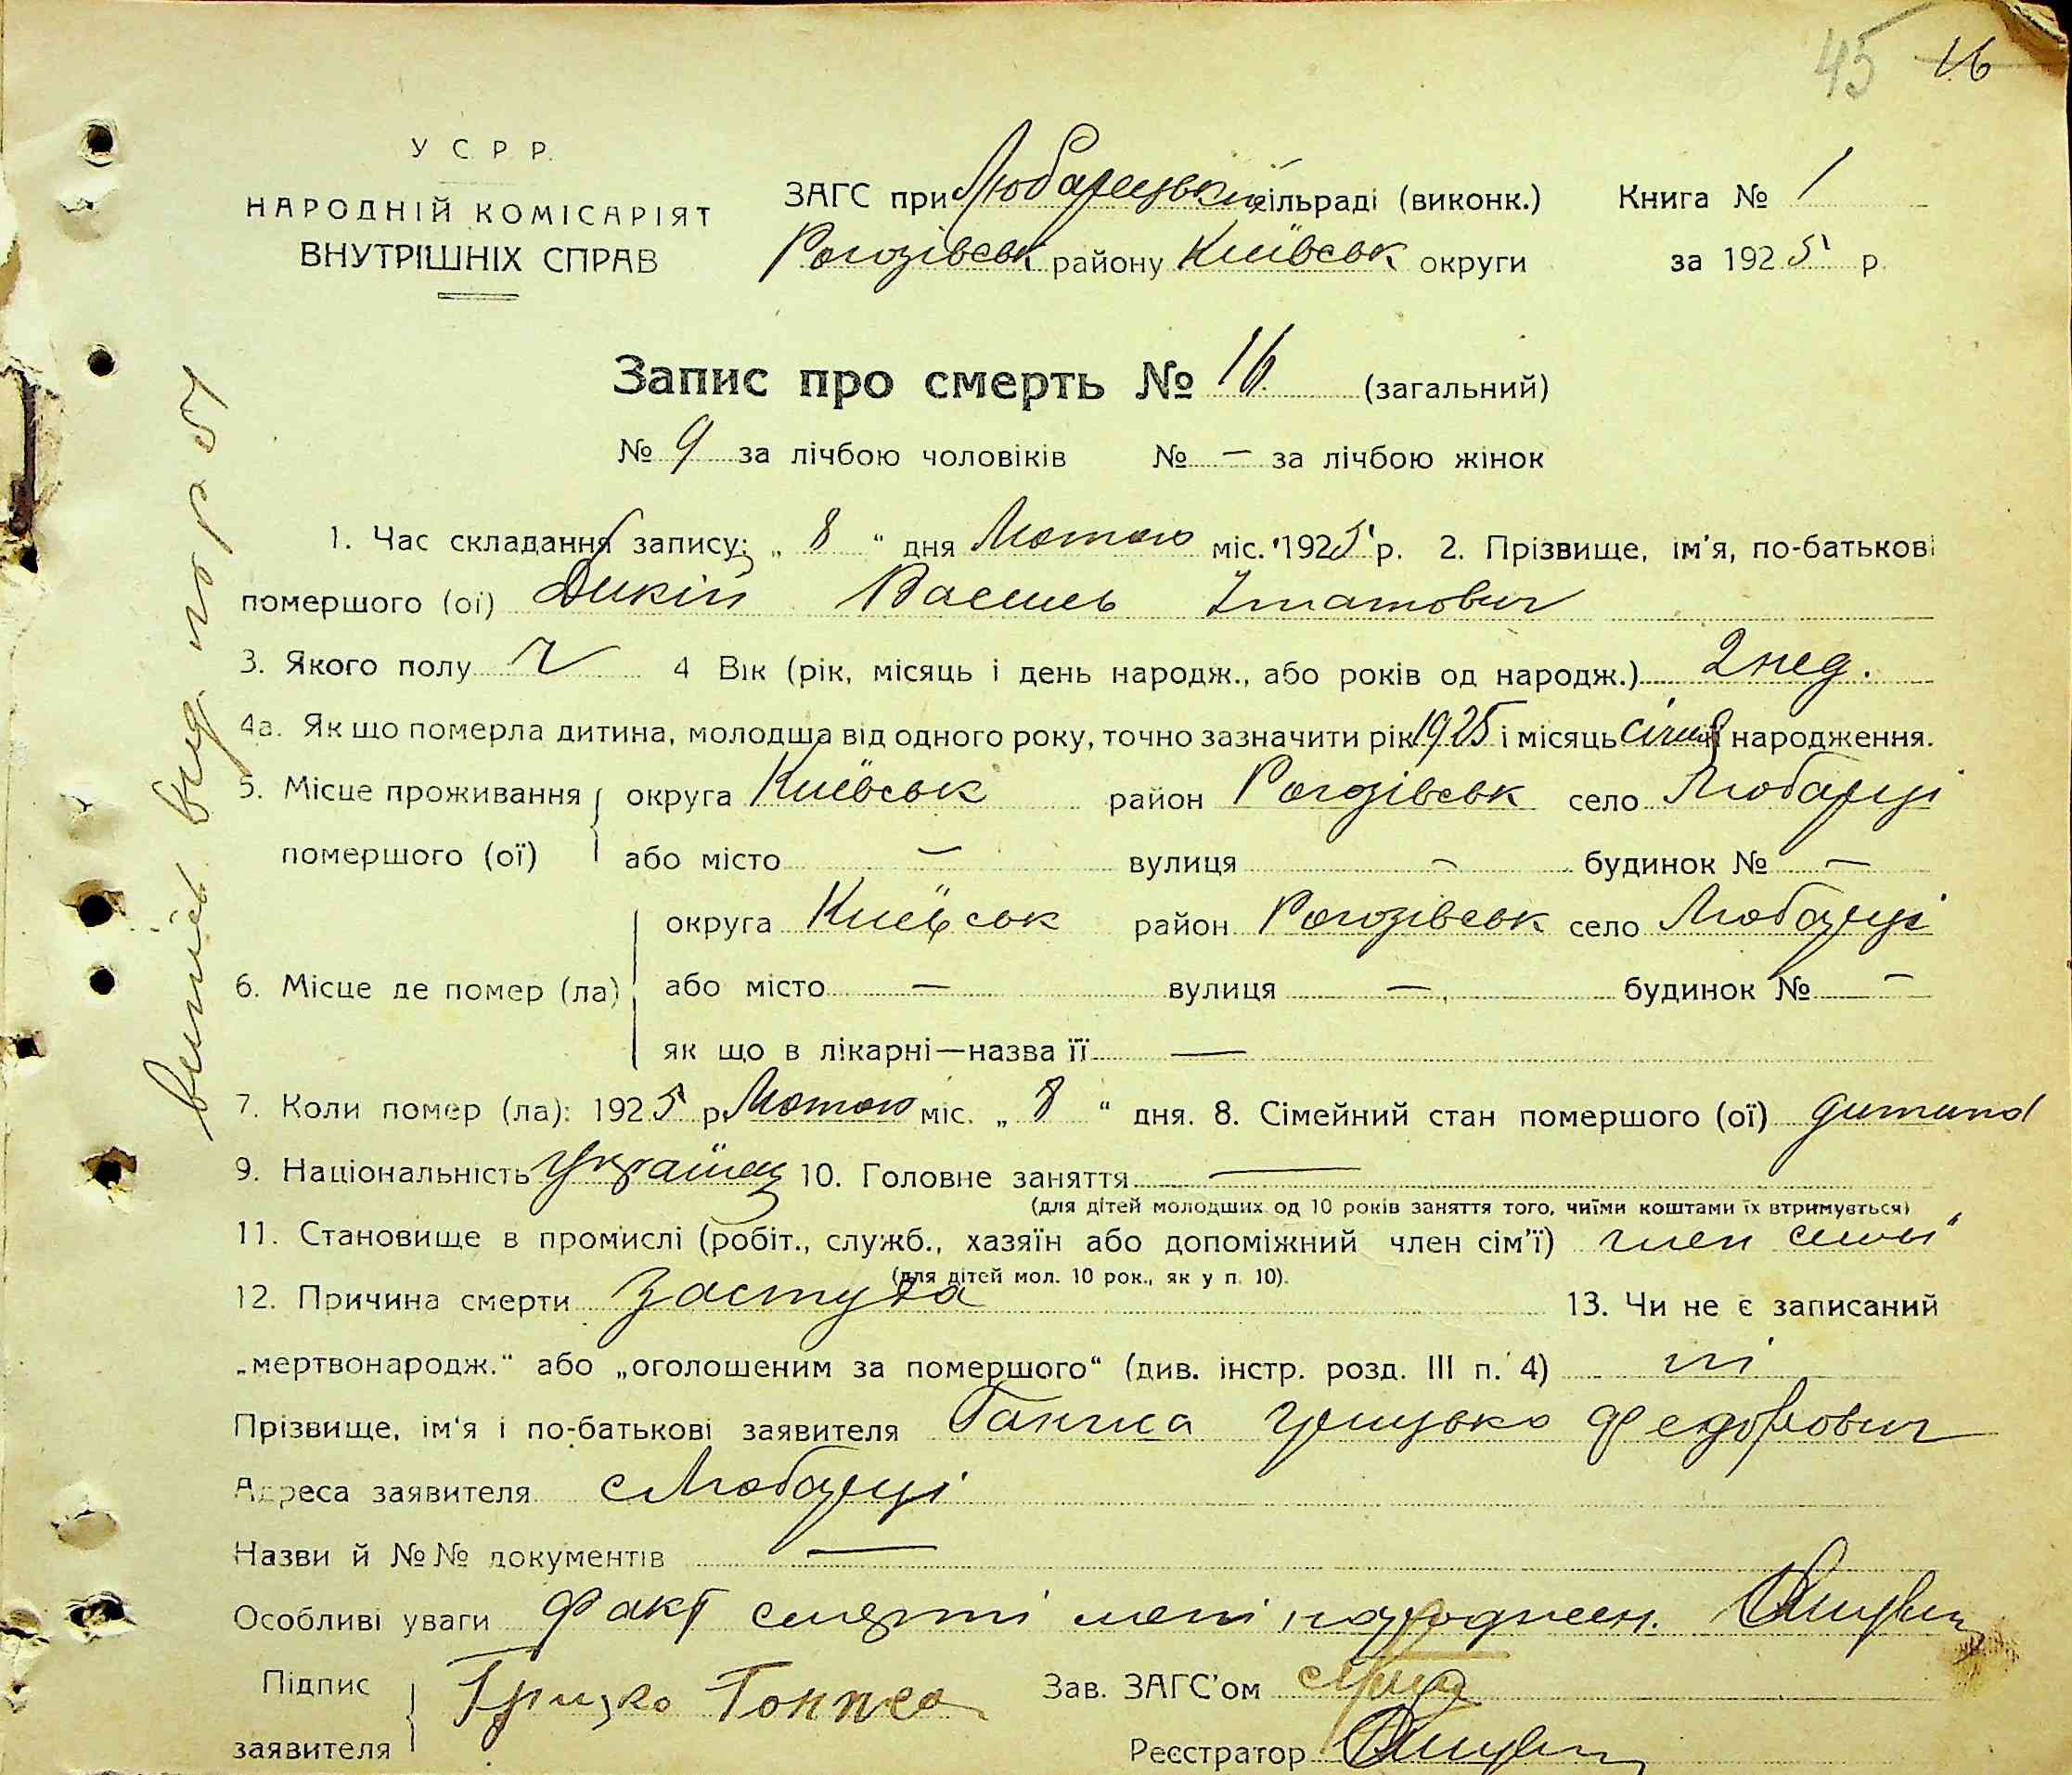 45 16
У С Р Р.
НАРОДНІЙ КОМІСАРІЯТ
ВНУТРІШНІХ СПРАВ
ЗАГС при Любарецькій сільраді (виконк.) Книга № 1
Рогозівськ району Київськ округи за 1925 р.
Запис про смерть № 16 (загальний)
№ 9 за лічбою чоловіків № — за лічбою жінок
1. Час складання запису: „ 8 “ дня Лютого міс. 1925 р. 2. Прізвище, ім'я, по-батькові
помершого (ої) Дикій Василь Ігнатович
3. Якого полу ч 4 Вік (рік, місяць і день народж., або років од народж.) 2 нед.
4а. Як що померла дитина, молодша від одного року, точно зазначити рік 1925 і місяць січня народження.
5. Місце проживання округа Київськ район Рогозівськ село Любарці
помершого (ої) або місто — вулиця — будинок № —
округа Київськ район Рогозівськ село Любарці
6. Місце де помер (ла) або місто — вулиця — будинок № —
як що в лікарні—назва її —
7. Коли помер (ла): 1925 р. Лютого міс. „ 8 “ дня. 8. Сімейний стан помершого (ої) дитина
9. Національність Українец 10. Головне заняття —
(для дітей молодших од 10 років заняття того, чиїми коштами їх втримується)
11. Становище в промислі (робіт., служб., хазяїн або допоміжний член сім'ї) член семьї
(для дітей мол. 10 рок., як у п. 10).
12. Причина смерти Застуда 13. Чи не є записаний
„мертвонародж.“ або „оголошеним за помершого“ (див. інстр. розд. III п. 4) ні
Прізвище, ім'я і по-батькові заявителя Ганжа Грицько Федорович
Адреса заявителя с Любарці
Назви й №№ документів —
Особливі уваги Факт смерти мені
Підпис Грицко Зав. ЗАГС'ом
заявителя Реєстратор
випись вид